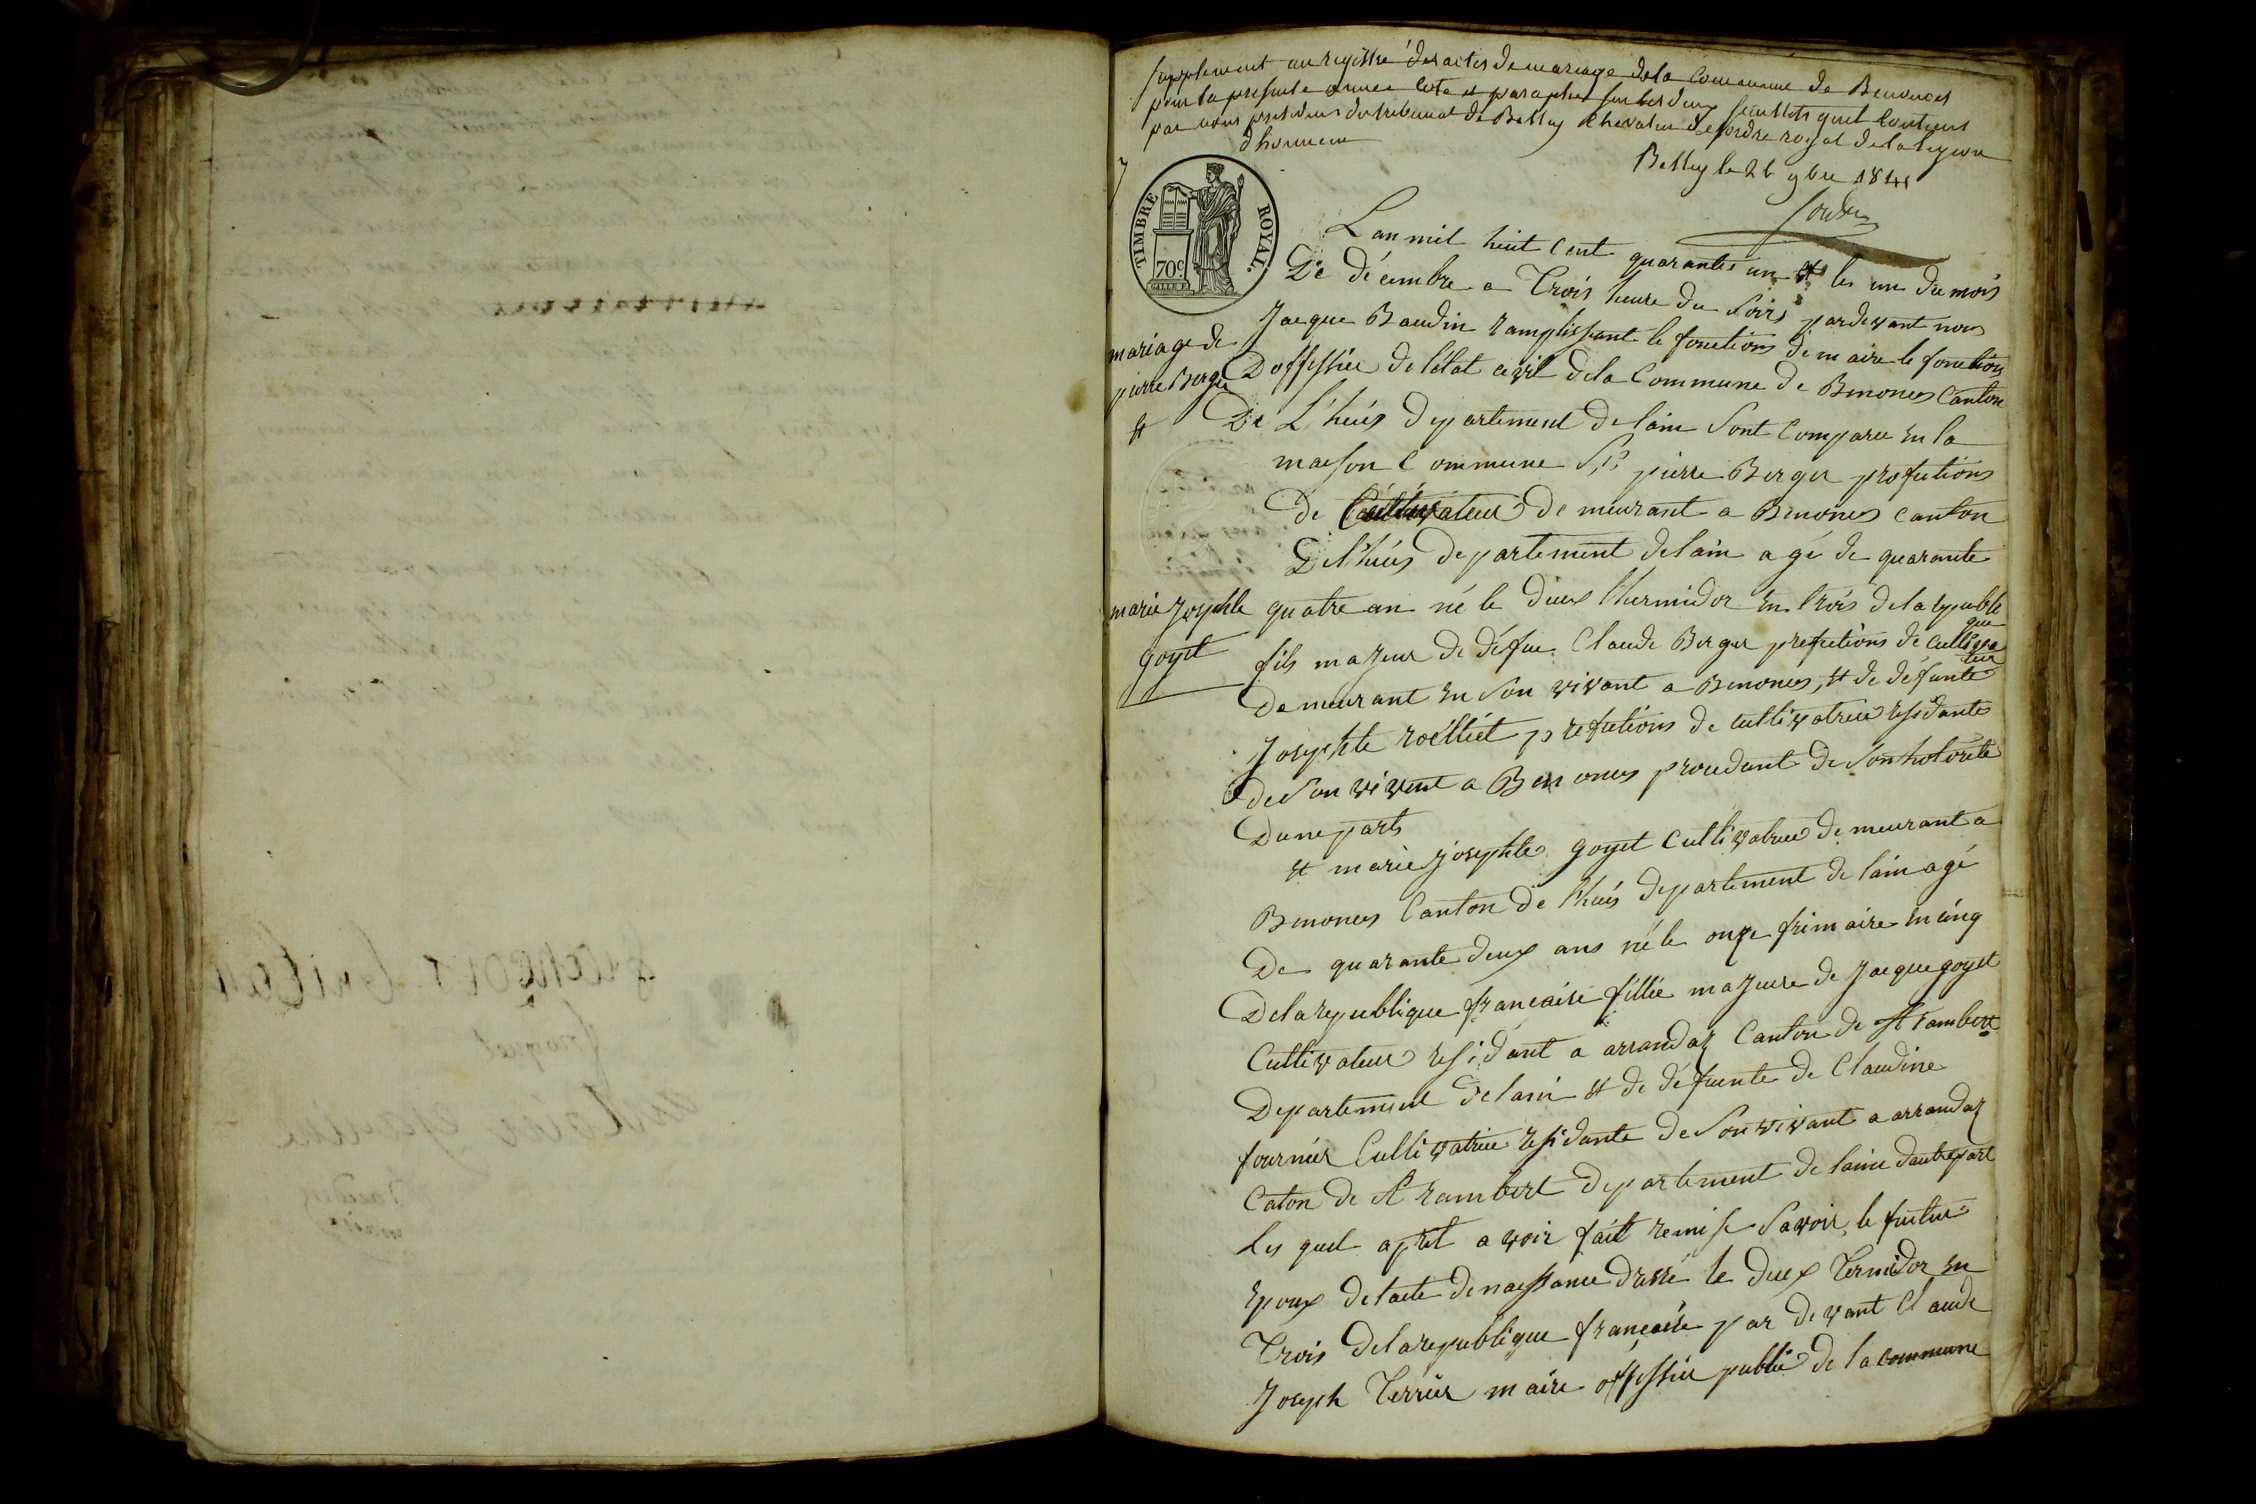 supplement au registre des actes de mariage dela Commune de Benonces
pour la presente année coté et paraphé sur les deux feuillets quil contient
par nous president du tribunal de Belley chevalier de lordre royal de la legion
d'honneur
Belley le 26 9bre 1841
TIMBRE ROYAL.
70c
Lan mil huit cent quarante un et les un du mois
De décembre a Trois heure du Soirs pardevant nous
Jacque Baudin ramplissant le fonctions de maire le fonctions
Doffissier de létat civil dela Commune de Benonces Canton
De L'huis departement de lain Sont Comparu en la
maison Commune Sr pierre Berger profutions
De Cultivateur de meurant a Benonces canton
De l'huis departement delain agé de quarante
quatre an né le dieux thermidor En trois de la republi
que
fils majeur de défue Claude Berger profutions de cultiva
teur
Demeurant En Son vivant a Benonces, et de défunte
Josephte roëlliet profutions de cultivatrice residante
de Son vivent a Benonces proudant de Son hotorité
Dune parts
et marie josephte goyet cultivatrice demeurant a
Benonces Canton de lhuis departement de lain agé
De quarante deux ans né le onze frimaire En cinq
De la republique francaise fillie majeure de Jacque goyet
Cultivateur residant a arrandaz Canton de St rambert
Departement de lain et de défuente de Claudine
fournier Cultivatrice residante de Son vivant a arrandaz
Caton de St rambert departement de laine dautre part
Les quel apret avoir fait remise Savoir, le futur
Epoux de lacte de naissance dréssé le dieux Termidor En
Trois de la republique francaise par devant Claude
Joseph Terrier maire offissier public de la commune
mariage de
pierre Berger
et
marie Josephte
goyet